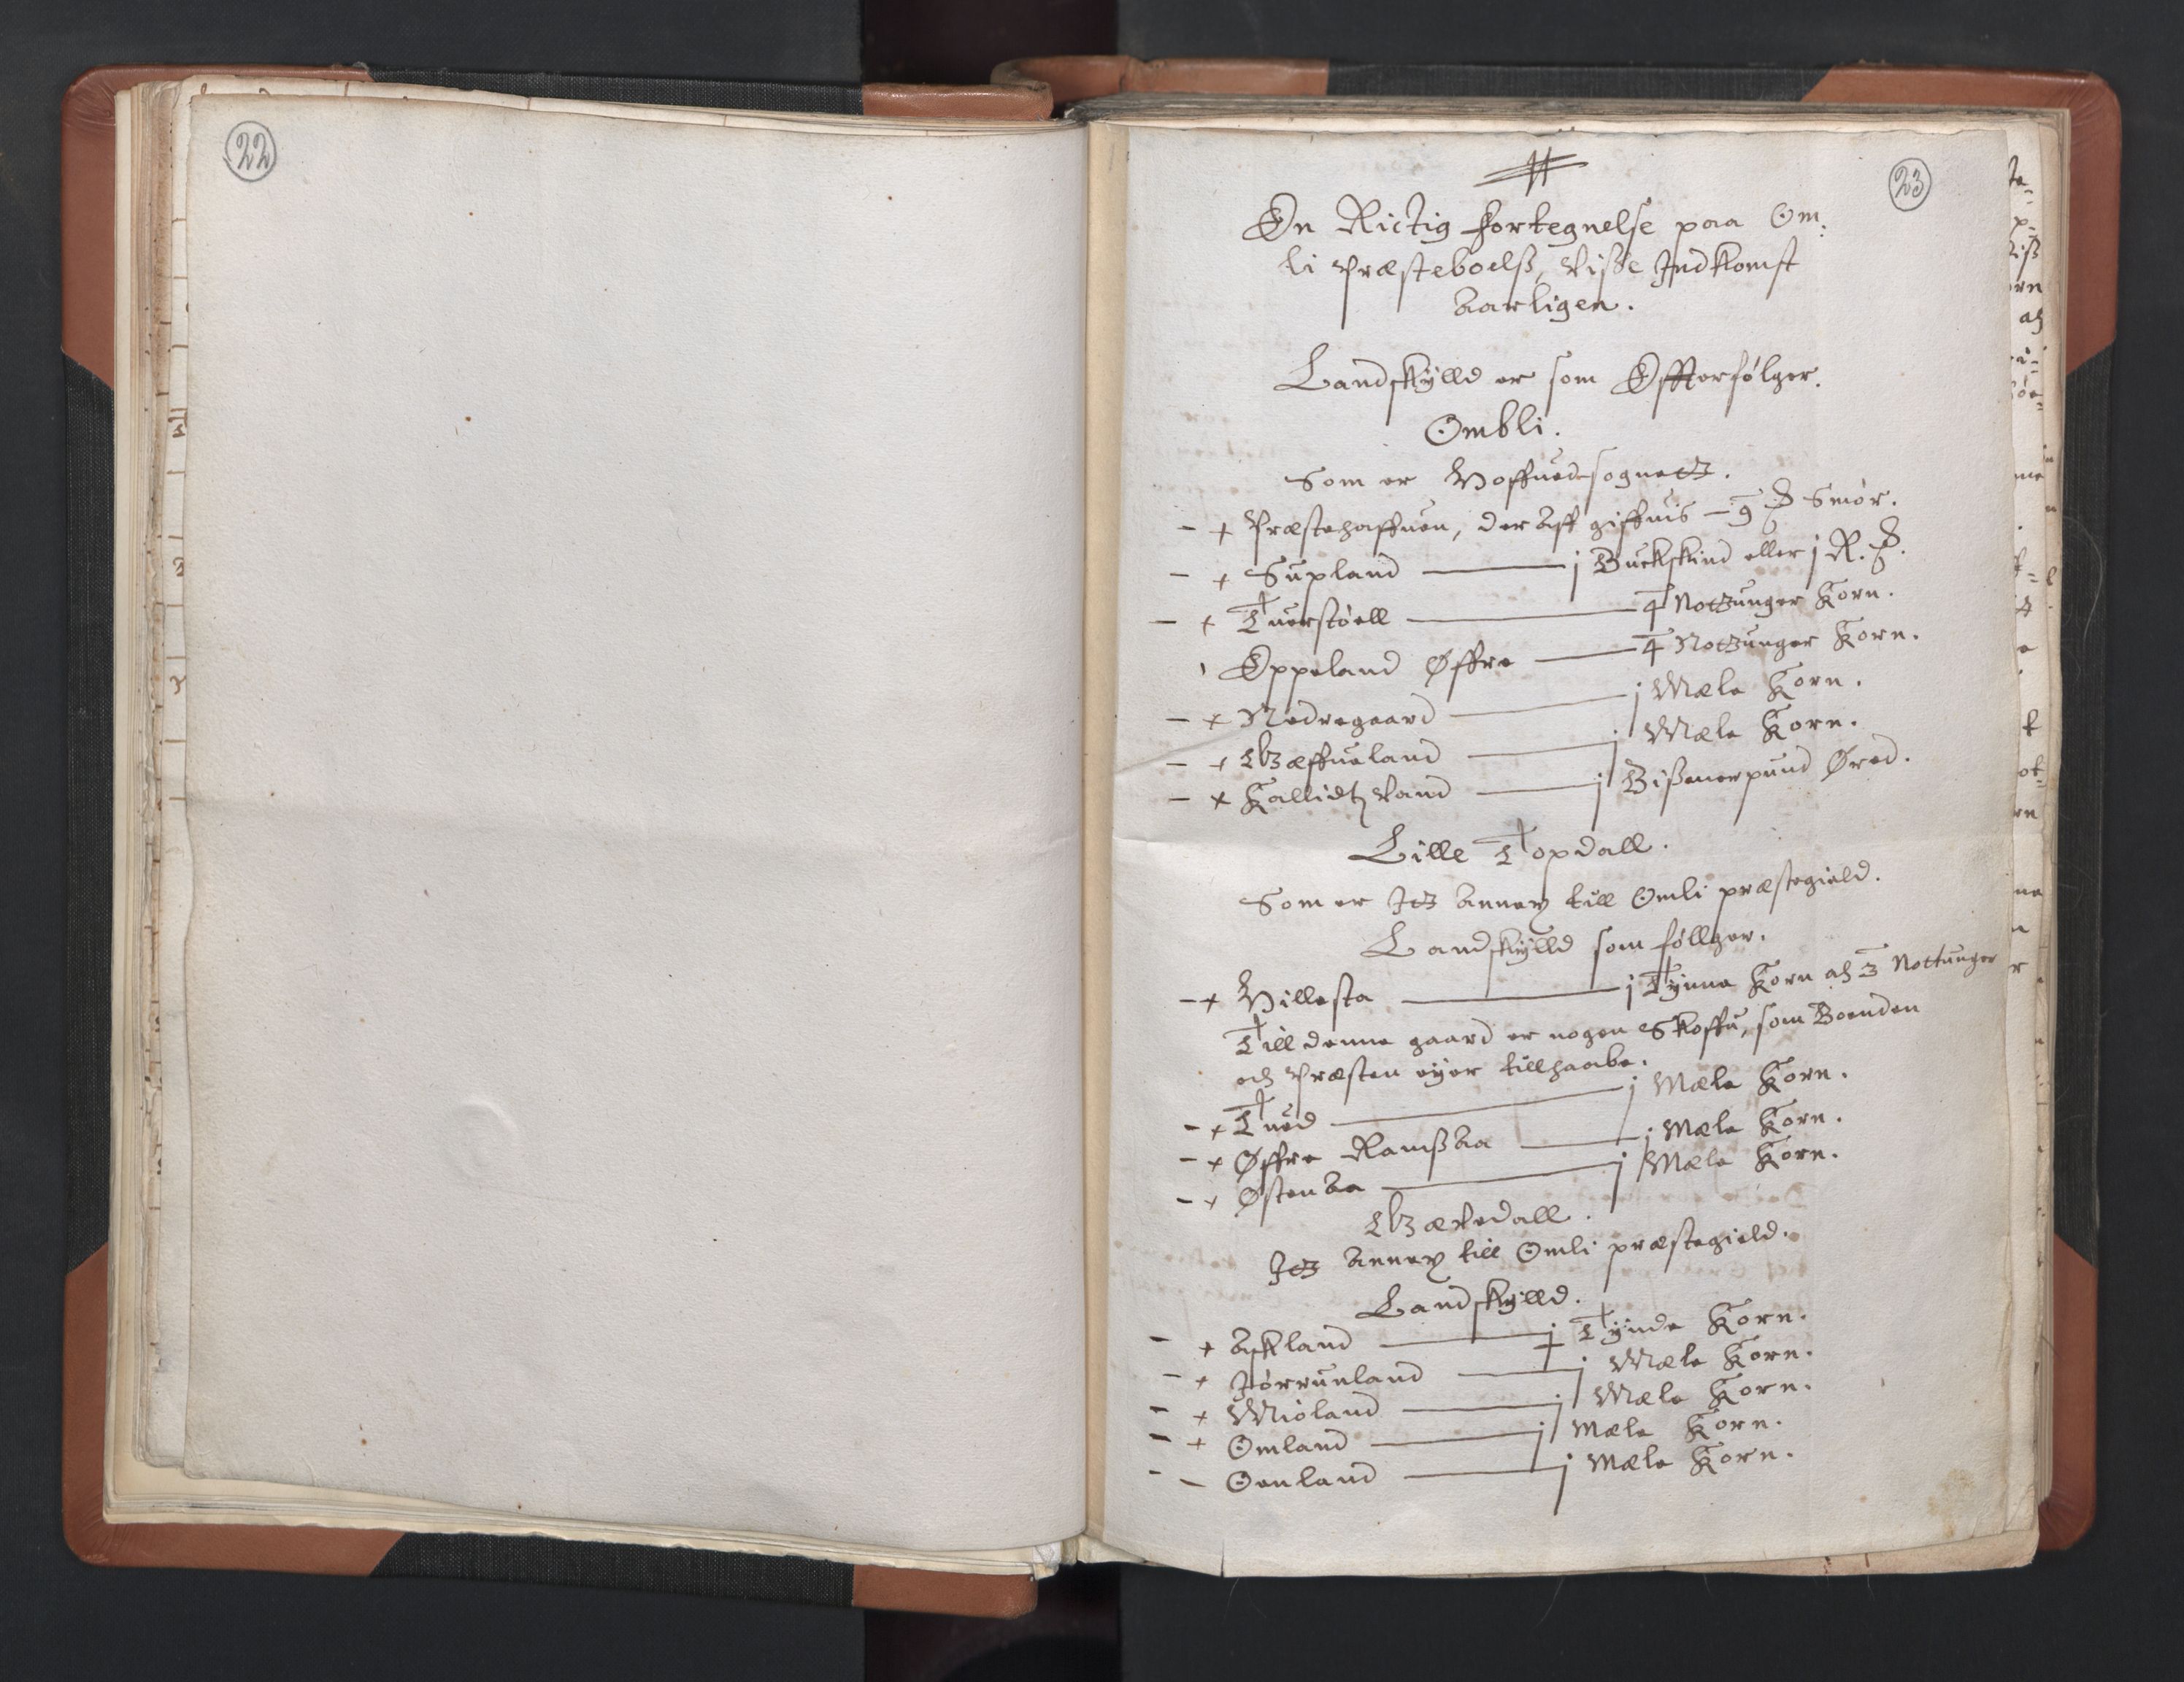 22
23
En Rictig fortegnelse paa Om:
li Præsteboelß, visse Indkomst
Aarligen.
Landskÿlld er som Effterfølger.
Ombli.
Som er Hoffuedsognetz.
– + Præstehaffuen, der Aff giffuis – 9 ₰ Smør.
– + Supland — j Buckskind eller j R. ₰.
– + Tuerstöell — 4 Notzunger Korn.
Eppeland Øffre — 4 Notzunger Korn.
– + Nedregaard — j Mæle Korn.
– + Hæffueland — j Mæle Korn.
– + Kallidtzvand — j Bißmerpund Øred.
Lille Topdall.
Som er Itz Annex till Omli præstegield.
Landskÿlld som föllger.
– + Hillesta — j Tÿnne Korn och 3 Nottunger
Till denne gaard er nogen Skoffu, som Boenden
och Præsten eÿer tillhaabe.
– + Tued — j Mæle Korn.
– + Øffre Ramßaa — j Mæle Korn.
– + Østenaa — j Mæle Korn.
Gævedall.
Itz Annex till Omli præstegield.
Landskÿlld.
– + Askland — j Tÿnde Korn.
– + Jørrunland — j Mæle Korn.
– + Mioland — j Mæle Korn.
– + Omland — j Mæle Korn.
– – Oenland — j Mæle Korn.